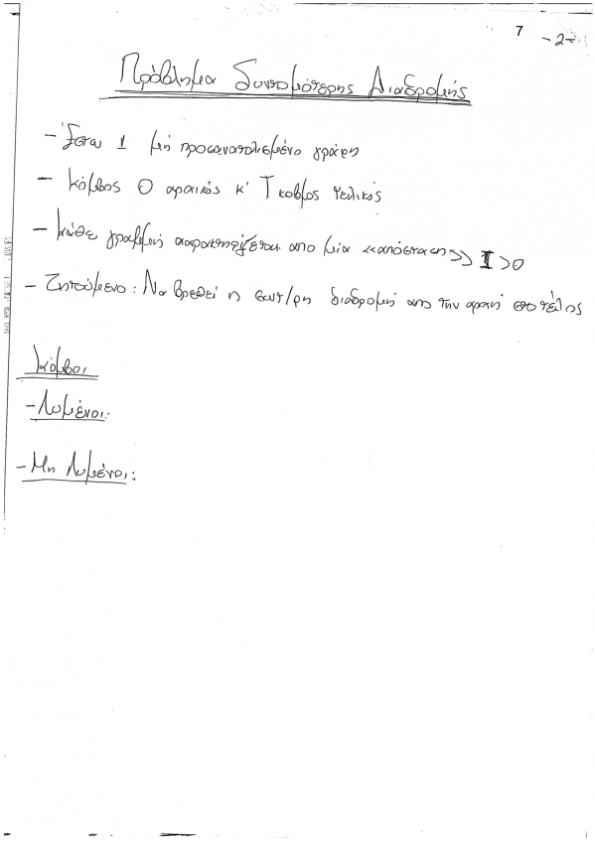 7 -2-
Πρόβλημα Συντομότερης Διαδρομής
- Έστω 1 μή προσανατολισμένο γράφη
- Κόμβος Ο αρχικός κ' Τ κόμβος τελικός
- Κάθε γραμμή από μία «απόσταση» I>0
- Ζητούμενο: Να βρεθεί η συντ/ρη διαδρομή απο την αρχή στο τέλος
Κόμβοι
- Λυμένοι:
- Μη Λυμένοι: